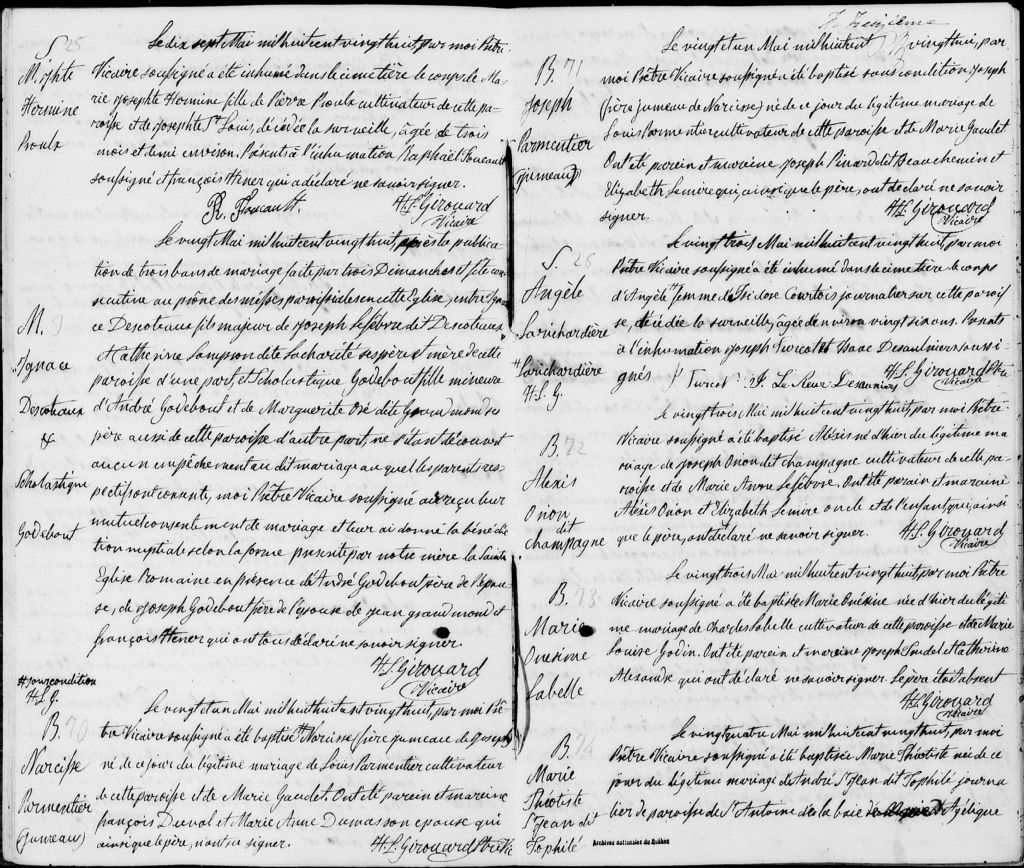 S 25
M. Jphte
Hermine
Proulx
Le dix sept Mai mil huit cent vingt huit, par moi Prêtre
Vicaire soussigné a été inhumé dans le cimetière le corps de Ma-
rie Josephte Hermine fille de Pierre Proulx cultivateur de cette pa-
roisse et de Josephte St Louis, décédée la surveille, âgée de trois
mois et demi environ. Présent à l'inhumation Raphaël Foucault
soussigné et françois Hener qui a déclaré ne savoir signer.
R. Foucault. H. L. Girouard
Vicaire
M. 9
Ignace
Descoteaux
&
Scholastique
Godebout
Le vingt Mai mil huit cent vingt huit, après la publica-
tion de trois bans de mariage faite par trois Dimanches et fête con-
secutive au prône des messes paroissiales en cette Eglise, entre Igna-
ce Descoteaux fils majeur de Joseph Lefebvre dit Descoteaux
et Catherine Lampson dite Lacharité ses père et mère de cette
paroisse d'une part, et Scholastique Godebout fille mineure
d'André Godebout et de Marguerite dite Grand mond ses
père aussi de cette paroisse d'autre part, ne s'étant découvert
aucun empêchement au dit mariage auquel les parents res-
pectifs ont consenti, moi Prêtre Vicaire soussigné ai reçu leur
mutuel consentement de mariage et leur ai donné la bénédic-
tion nuptiale selon la forme prescrite par notre mère la Sainte
Eglise Romaine en présence d'André Godebout père de l'épou-
se, de Joseph Godebout frère de l'épouse de Jean grand mond et
françois Hener qui ont tous déclaré ne savoir signer.
H. L. Girouard
Vicaire
# sous condition
H. L. G.
B. 70
Narcisse
Parmentier
(jumeaux)
Le vingt et un Mai mil huit cent vingt huit, par moi Prê-
tre Vicaire soussigné a été baptisé # Narcisse (frère jumeau de Joseph)
né de ce jour du légitime mariage de Louis Parmentier cultivateur
de cette paroisse et de Marie Gaudet. Ont été parein et mareine
françois Duval et Marie Anne Dumasson epouse qui
ainsi que le père, n'ont su signer. H. L. Girouard Ptre Vic
Treizième
B. 71
Joseph
Parmentier
(jumeau)
Le vingt et un Mai mil huit cent vingt huit, par
moi Prêtre Vicaire soussigné a été baptisé sous condition Joseph
(frère jumeau de Narcisse) né de ce jour du légitime mariage de
Louis Parmentier cultivateur de cette paroisse et de Marie Gaudet.
Ont été parein et mareine Joseph Pinard dit Beauchemin et
Elizabeth Lemire qui, ainsi que le père, ont declaré ne savoir
signer. H. L. Girouard
Vicaire
S. 26
Angèle
Larichardière
# Larichardière
H. L. G.
Le vingt trois Mai mil huit cent vingt huit, par moi
Prêtre Vicaire soussigné a été inhumé dans le cimetière le corps
d'Angèle # femme d'Isidore Courtois journalier sur cette parois-
se, décédée la surveille, âgée d'environ vingt six ans. Présents
à l'inhumation Joseph Turcot et Isaac Desaulniers soussi-
gnés J Turcot. I. Le Sieur Desauniers H. L. Girouard Ptre
Vicaire
B. 72
Alexis
Onon
dit
Champagne
Le vingt trois, Mai mil huit cent vingt huit, par moi Prêtre
Vicaire soussigné a été baptisé Alexis né d'hier du légitime ma-
riage de Joseph Onon dit Champagne cultivateur de cette pa-
roisse et de Marie Anne Lefebvre. Ont été parain et maraine
Alexis Onon et Elizabeth Lemire oncle et de l'enfant, qui, ainsi
que le père, ont déclaré ne savoir signer. H. L. Girouard
Vicaire
B. 73
Marie
Onésime
Labelle
Le vingt trois Mai mil huit cent vingt huit, par moi Prêtre
Vicaire soussigné a été baptisée Marie Onésime née d'hier du légiti-
me mariage de Charles Labelle cultivateur de cette paroisse et de Marie
Louise Godin. Ont été parein et mareine Joseph Trudel et Catherine
Alexandre qui ont déclaré ne savoir signer. Le père étoit absent
H. L. Girouard
Vicaire
B. 74
Marie
Théotiste
St Jean dit
Tophilé
Le vingt quatre Mai mil huit cent vingt huit, par moi
Prêtre Vicaire soussigné a été baptisée Marie Théotiste née de ce
jour du légitime mariage d'André St Jean dit Tophilé journa-
lier de paroisse de St Antoine de la baie et d'Angélique
Archives nationales du Québec